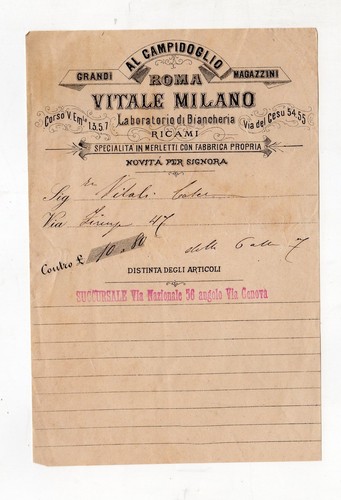 AL CAMPIDOGLIO
GRANDI MAGAZZINI
ROMA
VITALE MILANO
Corso V. Em.le 1.3.5.7
Laboratorio di Biancheria
Via del Gesú 54.55
RICAMI
SPECIALITA IN MERLETTI CON FABBRICA PROPRIA
NOVITÁ PER SIGNORA
Sig Vitali
Via Firenze 47
Contro £ 10.80 dalle 6 alle 7
DISTINTA DEGLI ARTICOLI
SUCCURSALE Via Nazionale 56 angolo Via Genova